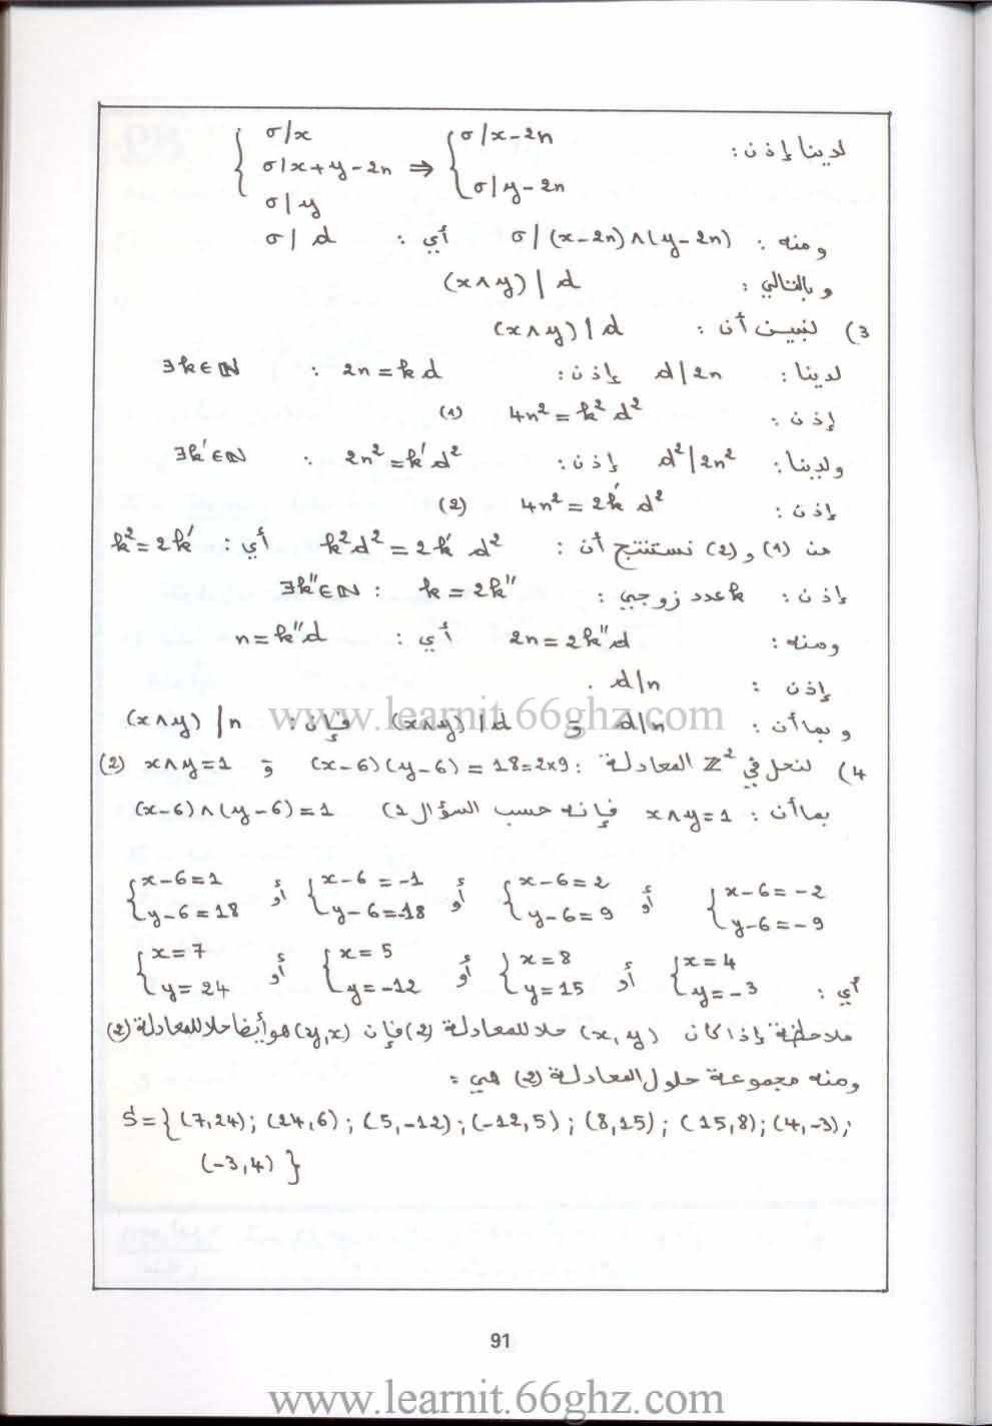 لدينا إذن: { σ/x ; σ/x+y-2n ; σ/y ⇒ { σ/x-2n ; σ/y-2n
ومنه : σ/(x-2n)∧(y-2n) أي : σ/d
وبالتالي : (x∧y)/d
3) لنبين أن : (x∧y)/d
لدينا : d/2n إذن: 2n=kd : ∃k∈ℕ
إذن : 4n²=k²d² (1)
ولدينا : d²/2n² إذن: 2n²=k'd² : ∃k'∈ℕ
إذن : 4n²=2k'd² (2)
من (1) و (2) نستنتج أن : k²d²=2k'd² أي : k²=2k'
إذن : k عدد زوجي : k=2k" : ∃k"∈ℕ
ومنه : 2n=2k"d أي : n=k"d
إذن : d/n .
وبما أن : d/n و (x∧y)/d فإن : (x∧y)/n
www.learnit.66ghz.com
4) لنحل في ℤ² المعادلة : (x-6)(y-6)=18=2x9 و x∧y=1 (2)
بما أن : x∧y=1 فإنه حسب السؤال 2) (x-6)∧(y-6)=1
{ x-6=1 ; y-6=18 أو { x-6=-1 ; y-6=-18 أو { x-6=2 ; y-6=9 أو { x-6=-2 ; y-6=-9
أي : { x=7 ; y=24 أو { x=5 ; y=-12 أو { x=8 ; y=15 أو { x=4 ; y=-3
ملاحظة إذا كان (x,y) حلا للمعادلة (2) فإن (y,x) هو أيضا حلا للمعادلة (2)
ومنه مجموعة حلول المعادلة (2) هي :
S={(7,24); (24,6); (5,-12); (-12,5); (8,15); (15,8); (4,-3);
(-3,4)}
91
www.learnit.66ghz.com